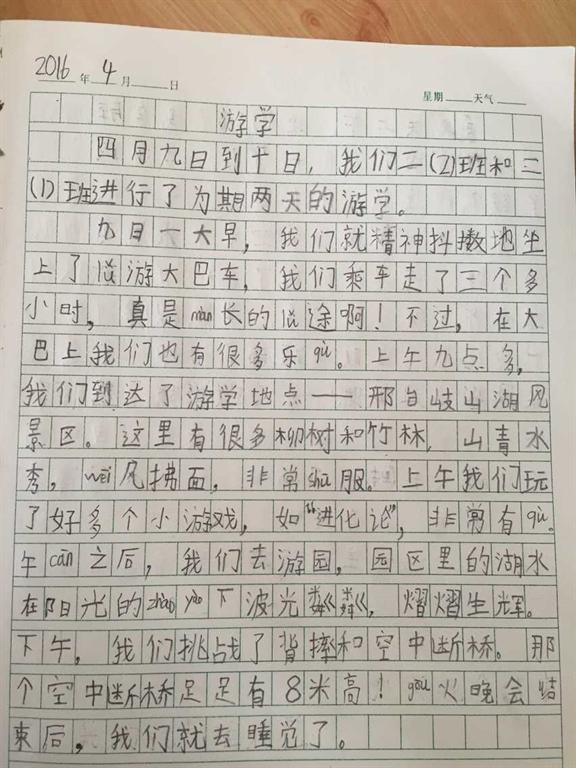 2016 年 4 月 日
星期 天气
游学
四月九日到十日，我们二(2)班和三
(1)班进行了为期两天的游学。
九日一大早，我们就精神抖擞地坐
上了旅游大巴车，我们乘车走了三个多
小时，真是màn长的旅途啊！不过，在大
巴上我们也有很多乐qù。上午九点多，
我们到达了游学地点——邢台岐山湖风
景区。这里有很多柳树和竹林，山青水
秀，wēi风拂面，非常shū服。上午我们玩
了好多个小游戏，如“进化论”，非常有qù。
午cān之后，我们去游园，园区里的湖水
在阳光的zhào yào下波光粼粼，熠熠生辉。
下午，我们挑战了背摔和空中断桥。那
个空中断桥足足有8米高！gōu火晚会结
束后，我们就去睡觉了。